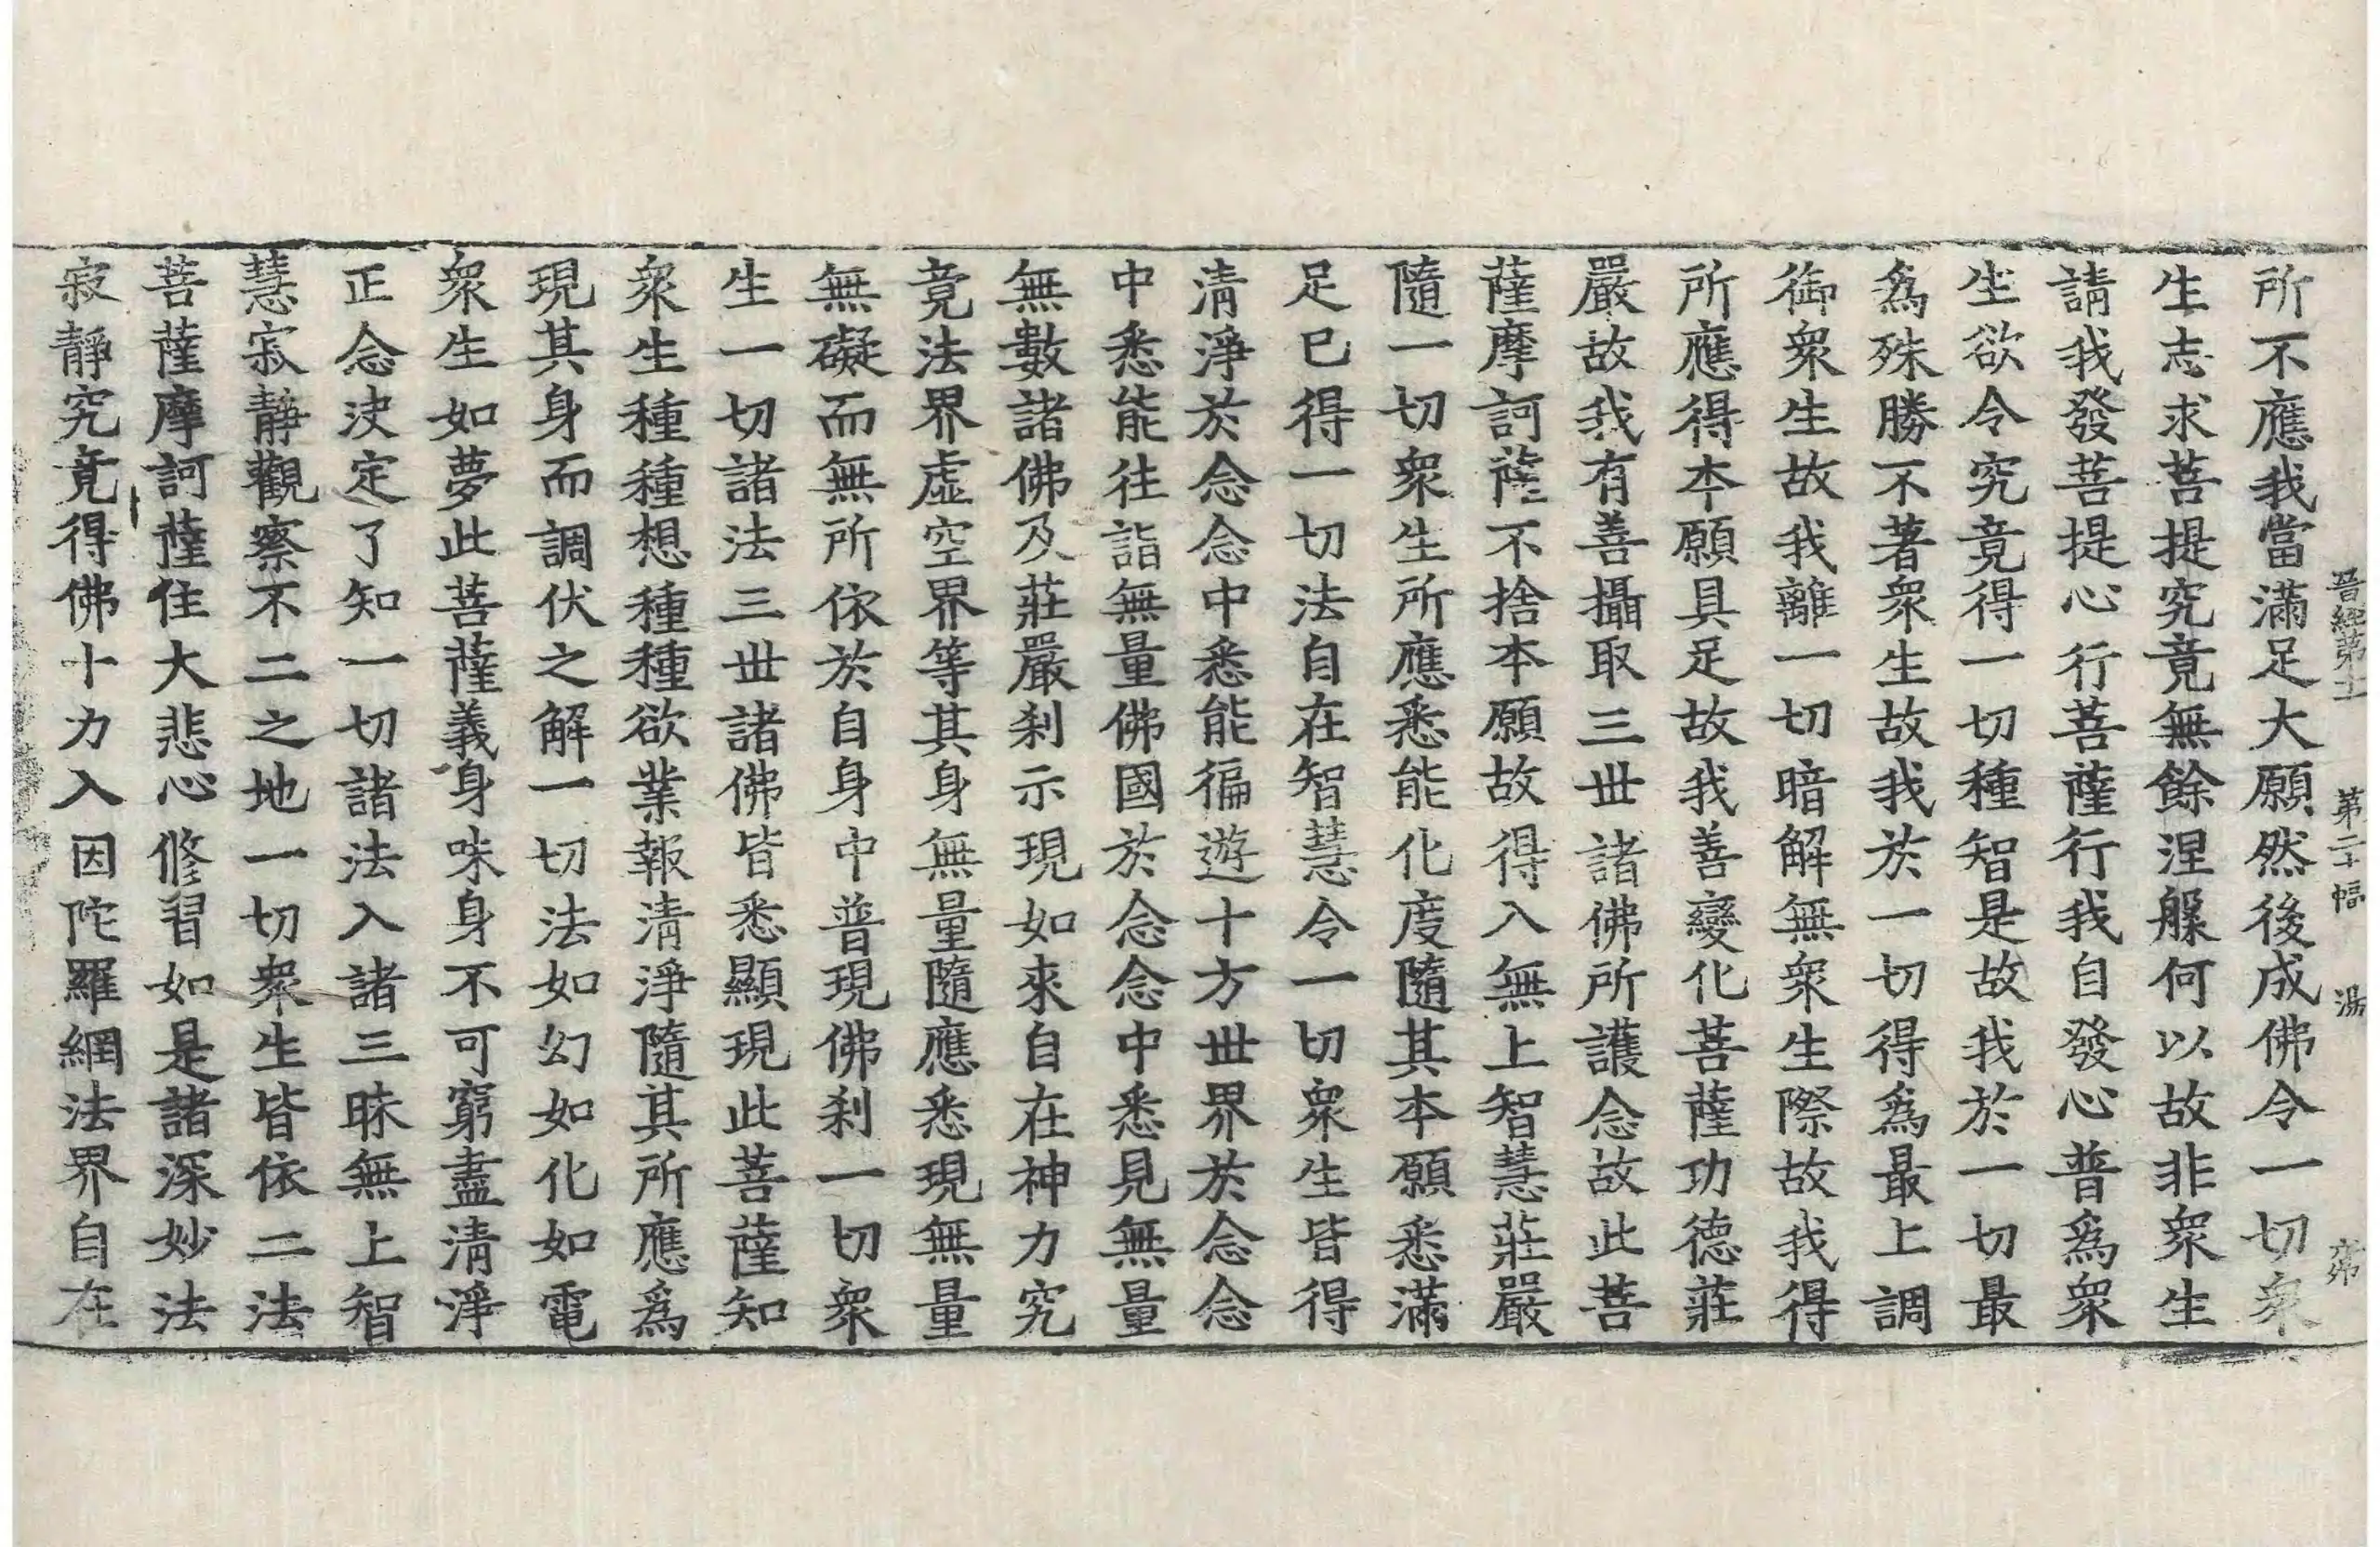 晉經第十二 第二十幅 湯
所不應我當滿足大願然後成佛令一切衆
生志求菩提究竟無餘涅槃何以故非衆生
請我發菩提心行菩薩行我自發心普爲衆
生欲令究竟得一切種智是故我於一切最
爲殊勝不著衆生故我於一切得爲最上調
御衆生故我離一切暗解無衆生際故我得
所應得本願具足故我善變化菩薩功德莊
嚴故我有善攝取三世諸佛所護念故此菩
薩摩訶薩不捨本願故得入無上智慧莊嚴
隨一切衆生所應悉能化度隨其本願悉滿
足已得一切法自在智慧令一切衆生皆得
清淨於念念中悉能徧遊十方世界於念念
中悉能往詣無量佛國於念念中悉見無量
無數諸佛及莊嚴刹示現如來自在神力究
竟法界虛空界等其身無量隨應悉現無量
無礙而無所依於自身中普現佛刹一切衆
生一切諸法三世諸佛皆悉顯現此菩薩知
衆生種種想種種欲業報清淨隨其所應爲
現其身而調伏之解一切法如幻如化如電
衆生如夢此菩薩義身味身不可窮盡清淨
正念決定了知一切諸法入諸三昧無上智
慧寂靜觀察不二之地一切衆生皆依二法
菩薩摩訶薩住大悲心修習如是諸深妙法
寂靜究竟得佛十力入因陀羅網法界自在